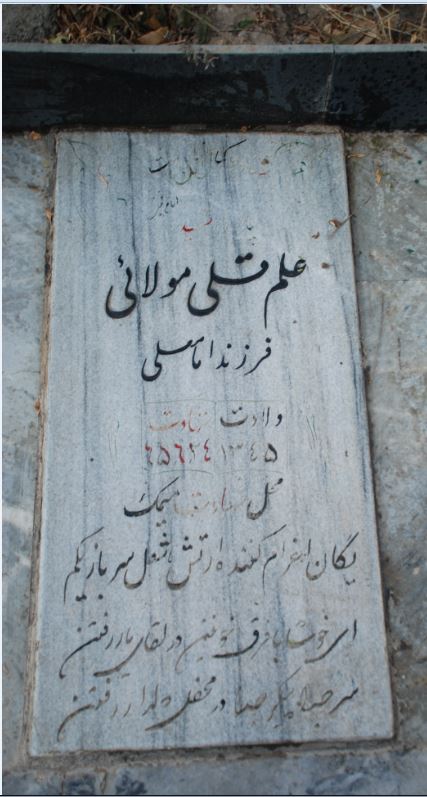 علم قلی مولائی
فرزند امامعلی
ولادت شهادت
۱۳۴۵ ۶۵٦٢٤
محل شهادت میمک
یگان اعزام کننده ارتش شغل سرباز یکم
ای خوشا با فرق خونین در لقای یار رفتن
سر جدا پیکر جدا در محفل دلدار رفتن